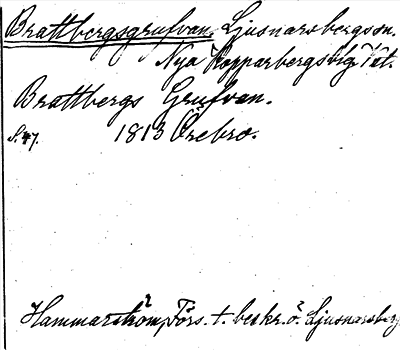 Brattbergsgrufvan. Ljusnarsbergssn.
Nya Kopparbergs blg. Vät.
Brattbergs Grufvan.
S. 47. 1813 Örebro.
Hammarström, Förs. t. beskr. ö. Ljusnarsberg